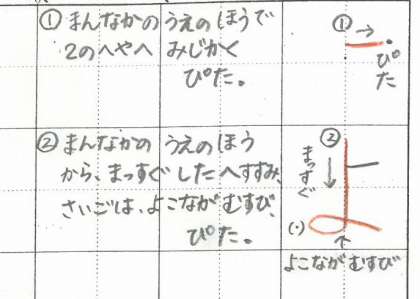 ① まんなかの うえのほうで
2のへやへ みじかく
ぴた。
①
ぴた
② まんなかの うえのほう
から、まっすぐしたへすすみ、
さいごは、よこながむすび、
ぴた。
②
まっすぐ
(・)
よこながむすび